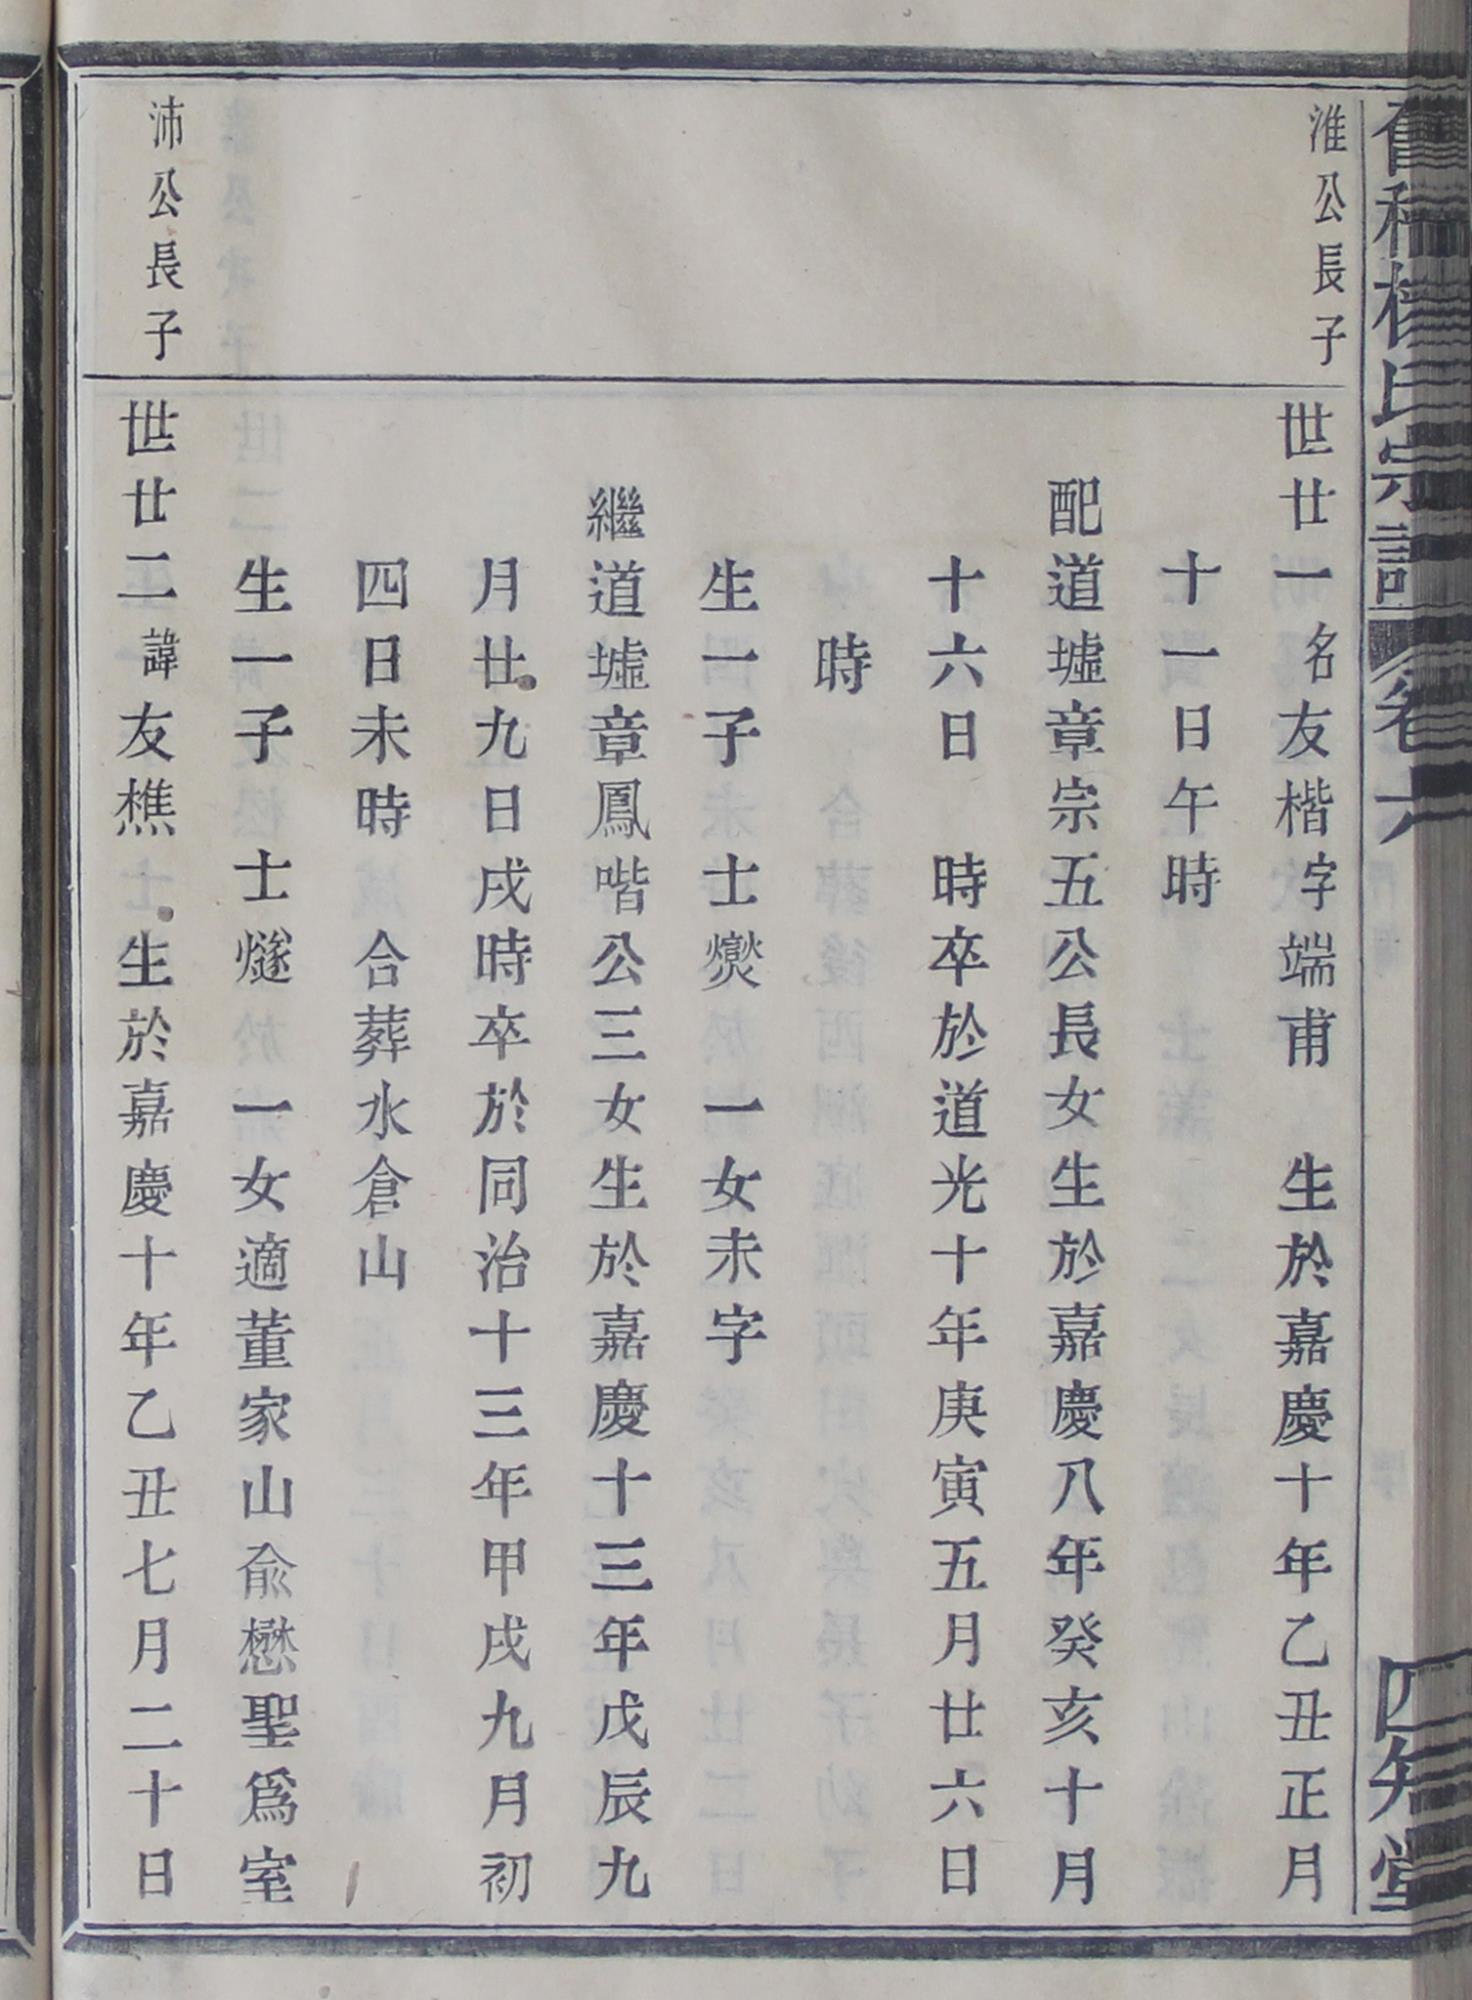 氏宗譜 卷六 四知堂
淮公長子
世廿一名友楷字端甫 生於嘉慶十年乙丑正月
十一日午時
配道墟章宗五公長女生於嘉慶八年癸亥十月
十六日 時卒於道光十年庚寅五月廿六日
時
生一子士爕 一女未字
繼道墟章鳳喈公三女生於嘉慶十三年戊辰九
月廿九日戌時卒於同治十三年甲戌九月初
四日未時 合葬水倉山
生一子士燧 一女適董家山俞懋聖爲室
沛公長子
世廿二諱友樵 生於嘉慶十年乙丑七月二十日